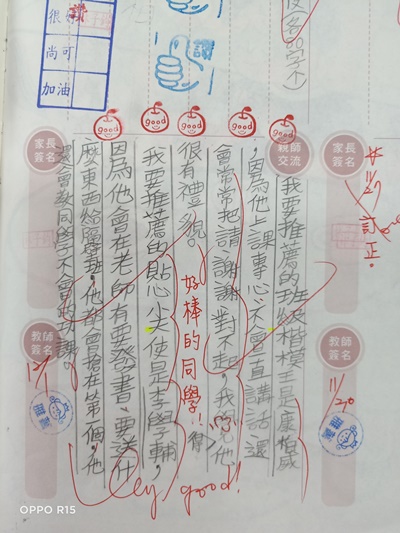 很好
讚
尚可
加油
讚
good
good
good
good
good
家長
簽名
親師
交流
家長
簽名
11/27
訂正。
我要推薦的班級楷模生是康
因為他上課專心、不會一直講話,還
會常常把請、謝謝、對不起,我覺得他
很有禮貌。
好棒的同學!!
我要推薦的貼心小天使是李學輔,
因為他會在老師有要發書、要送什
麼東西給隔壁班,他都會搶在第一個,他
還會教同學不會的功課。
教師
簽名
教師
簽名
12/1
11/30
Very good!
OPPO R15